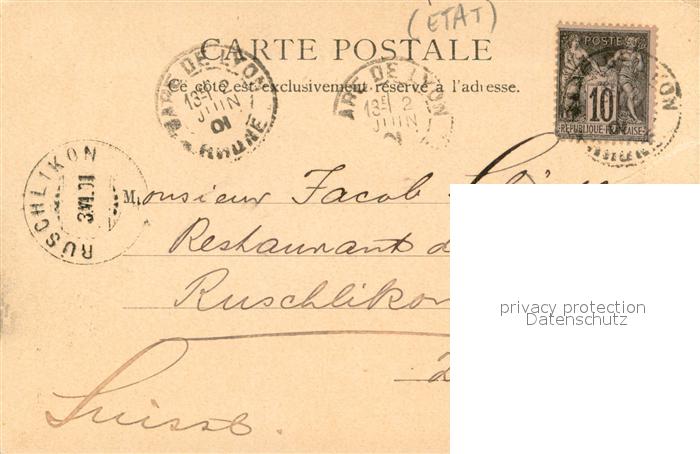 (ETAT)
CARTE POSTALE
Ce côté est exclusivement réservé à l'adresse.
POSTE
10
REPUBLIQUE FRANÇAISE
GARE DE LYON
13E 2
JUIN
01
RHONE
GARE DE LYON
13E 2
JUIN
01
LYON
RUSCHLIKON
3.VI.01
Monsieur Jacob
Restaurant
Ruschlikon
Suisse.
privacy protection
Datenschutz